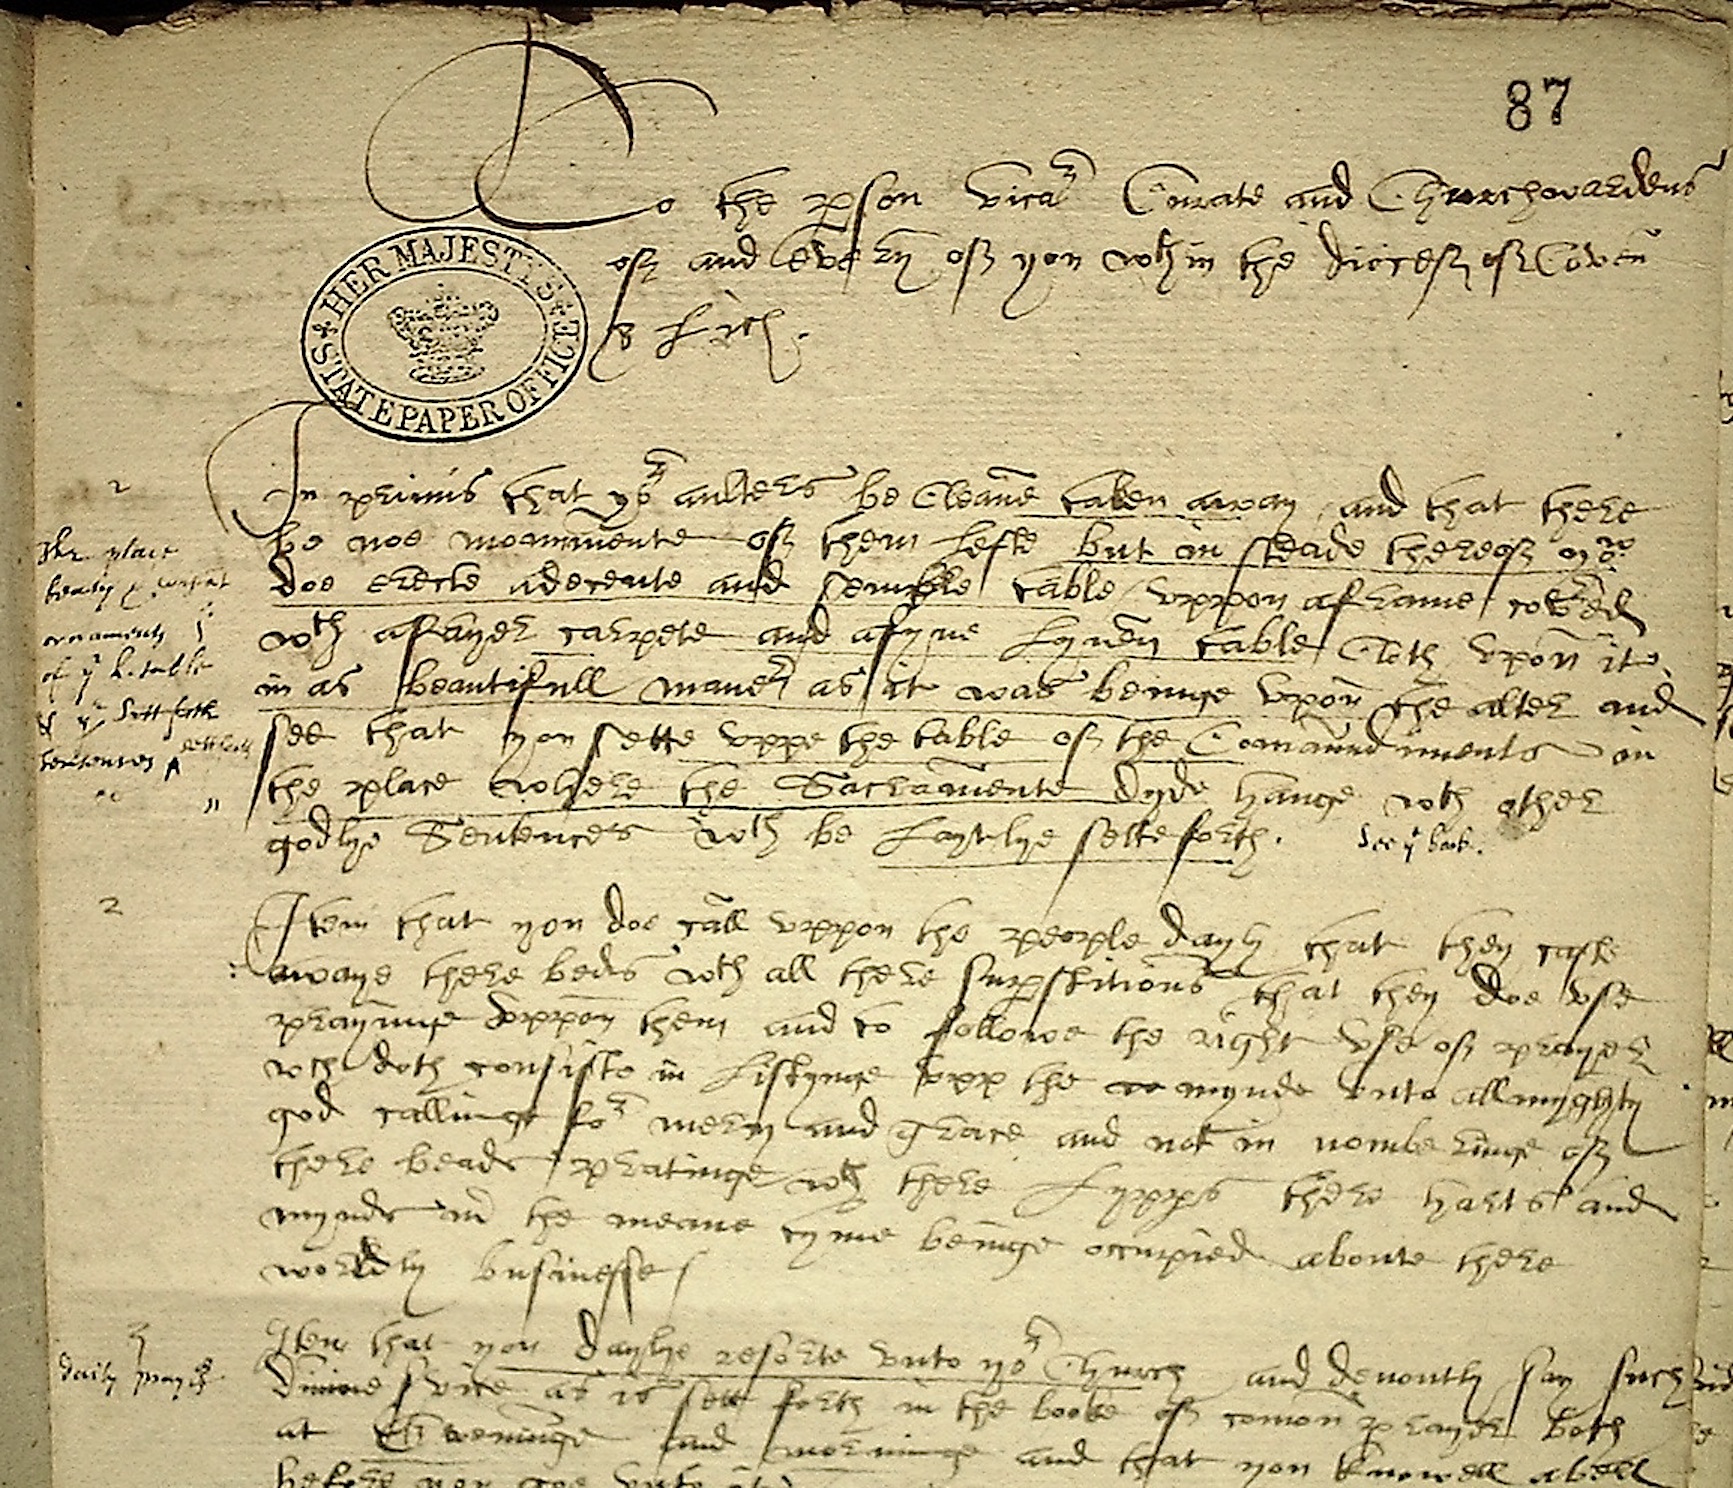 87
To the pson vicar Curate and Churchwardens
of and every of you wthin the dioces of Coven
& Lich.
HER MAJESTY'S STATE PAPER OFFICE
In primis that yor aulters be Cleane taken away and that there
be noe monumente of them lefte but in steade thereof yow
doe erecte a decente and semple table uppon a frame covered
wth a fayer carpete and a fyne lynen table Cloth upon it
in as beautifull maner as it was beinge upon the alter and
see that you sette uppe the table of the Comaundiments in
the place where the Sacramente dyde hange wth other
godlye Sentences wch be laytlye sette forth.
See ye book.
2
The place
beauty &
ornaments
of ye h. table
sett forth
sentences
2
Item that you doe call uppon the people dayly that they caste
awaye there beds wth all there supstitions that they doe use
prayinge uppon them and to followe the right use of prayer
wch doth consiste in liftynge upp the mynde unto allmyghty
god callinge for mercy and grace and not in nomberinge of
there beads pratinge wth there lypps there harts and
mynds in the meane tyme beinge occupied aboute there
worldly businesse
3
daily prayer
Item that you daylye resorte unto yor Church and devoutly say such
Divine srvice as is sett forth in the booke of comon prayer both
at Eveninge and morninge and that you knowell a bell
before you goe unto it